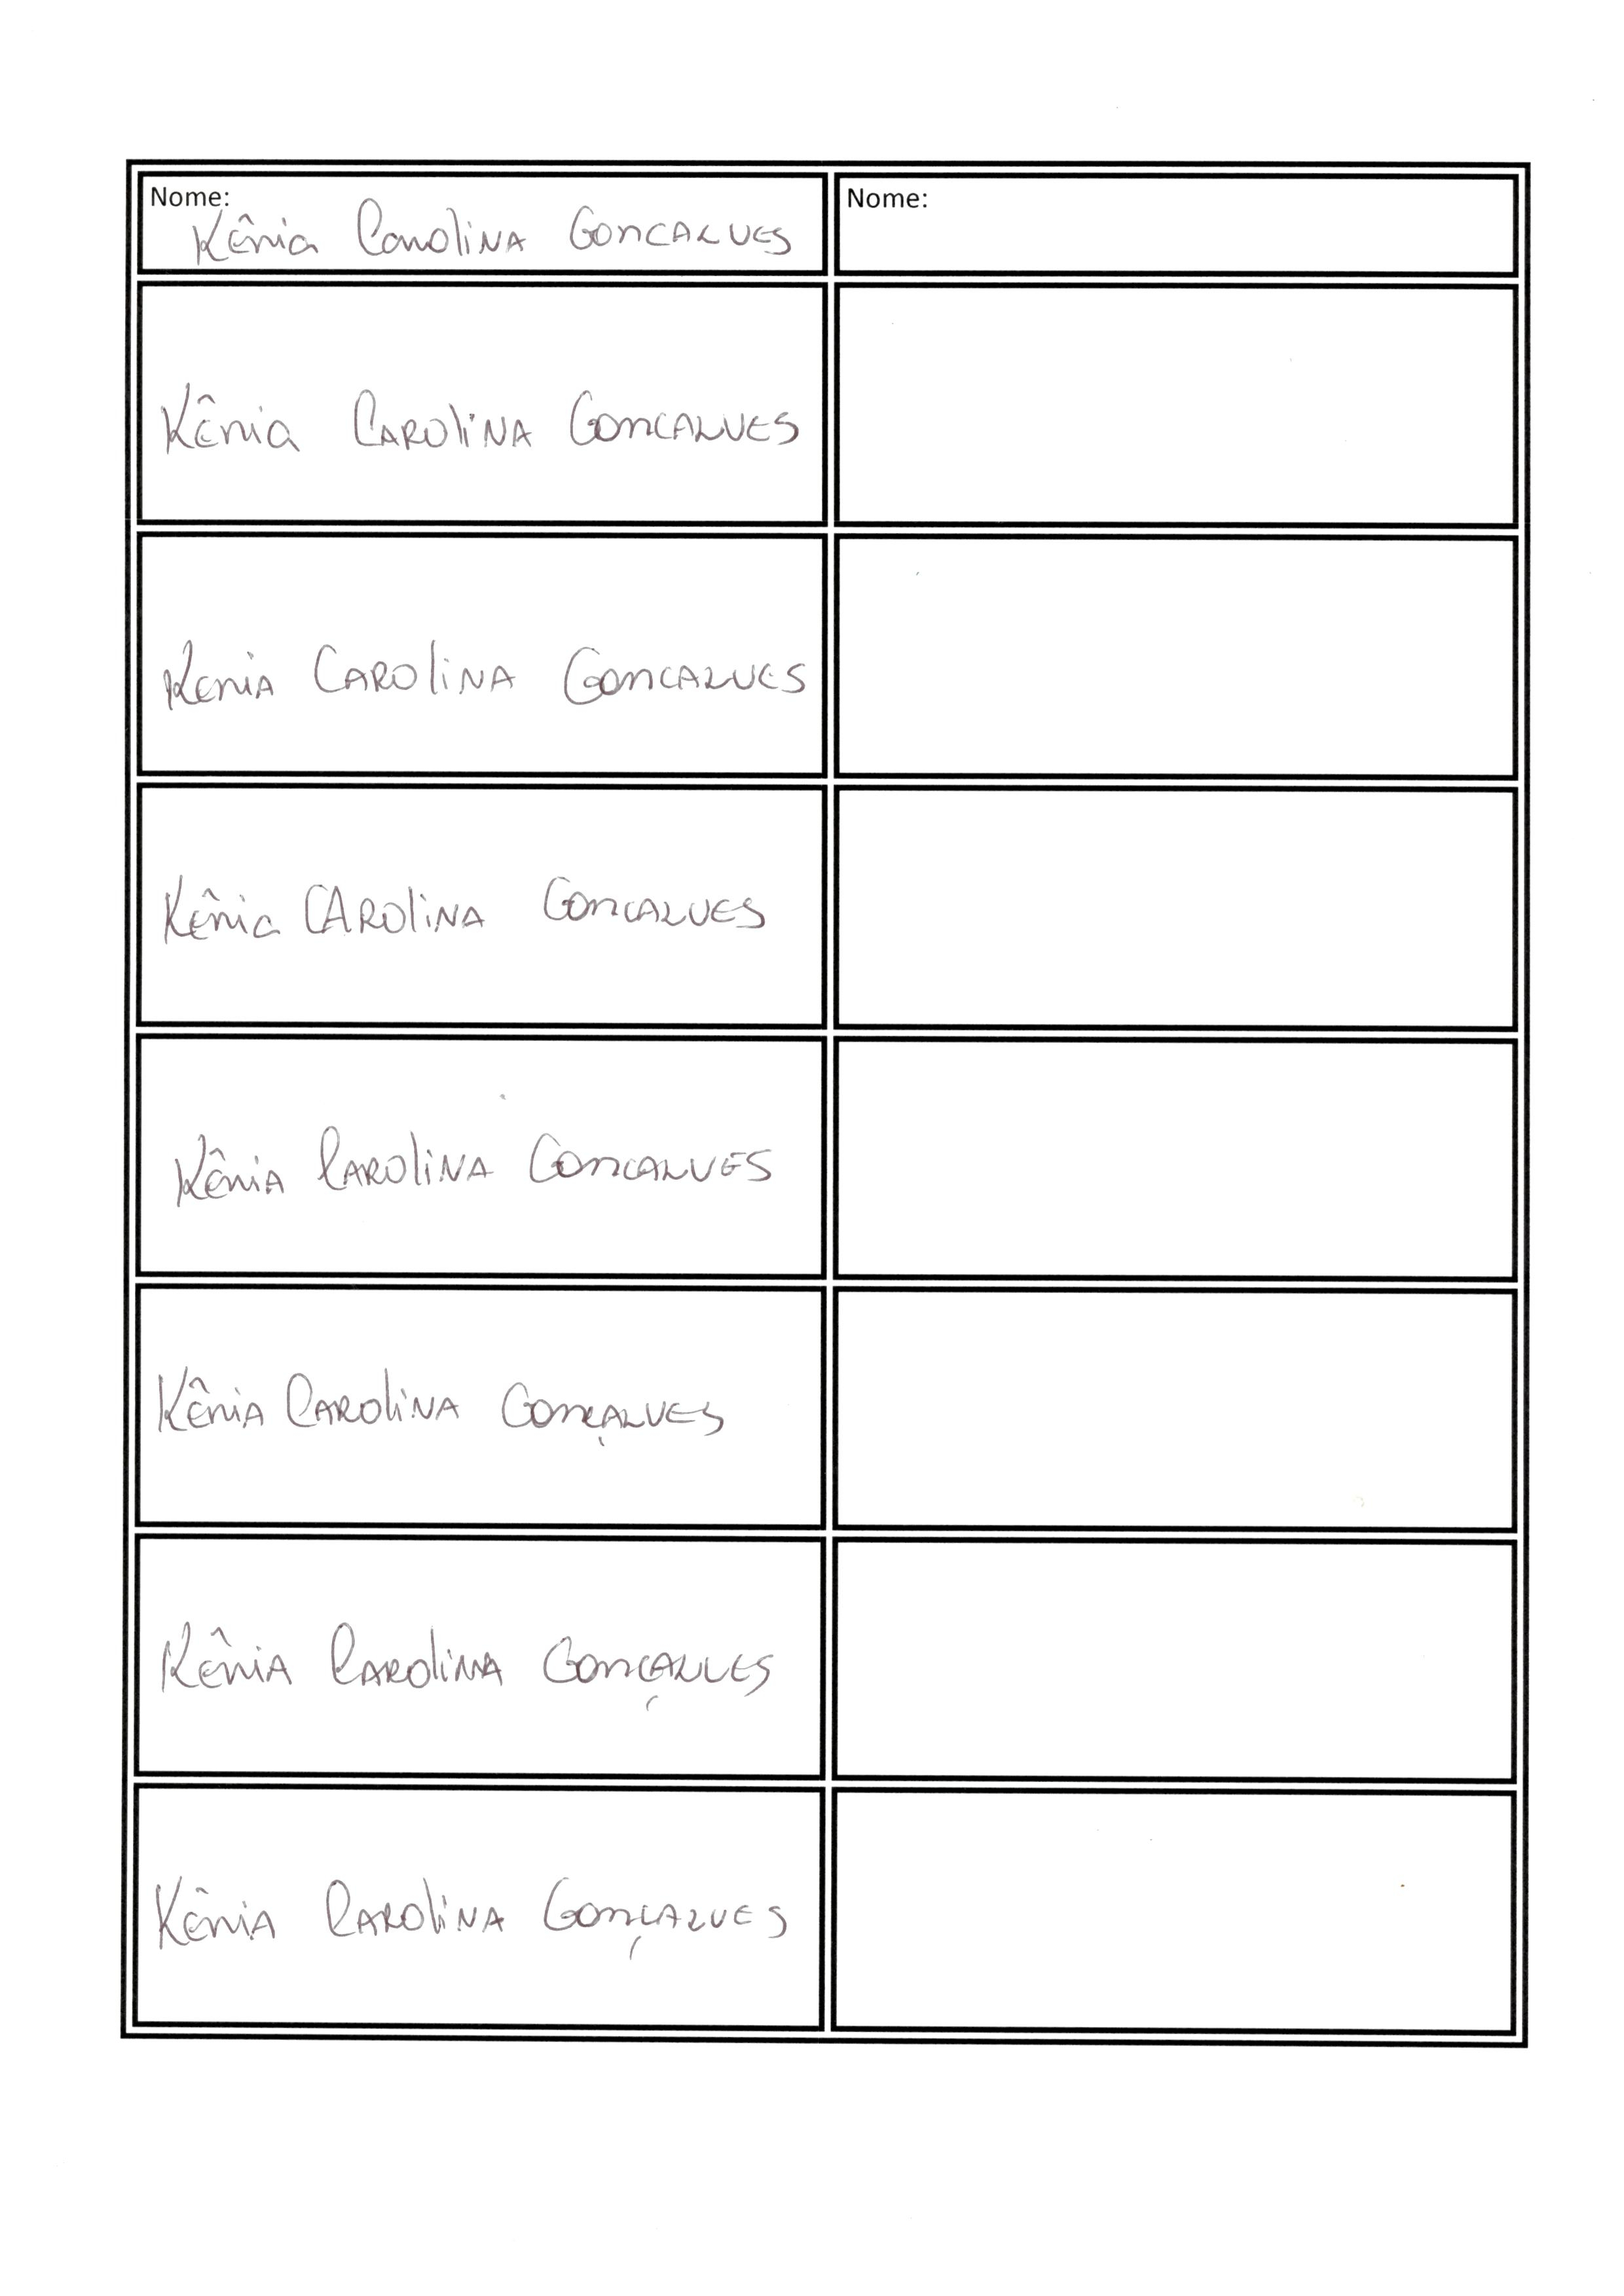 Nome:
Nome:
Kênia Carolina GONCALVES
Kênia CAROliNA GONCALVES
KENIA CAROliNA GONCALVES
Kênia CAROliNA GONCALVES
KêniA CAROliNA GONCALVES
KêniA CAROliNA GONÇALVES
KêniA CAROliNA GONÇALVES
KêniA CAROliNA GONÇALVES